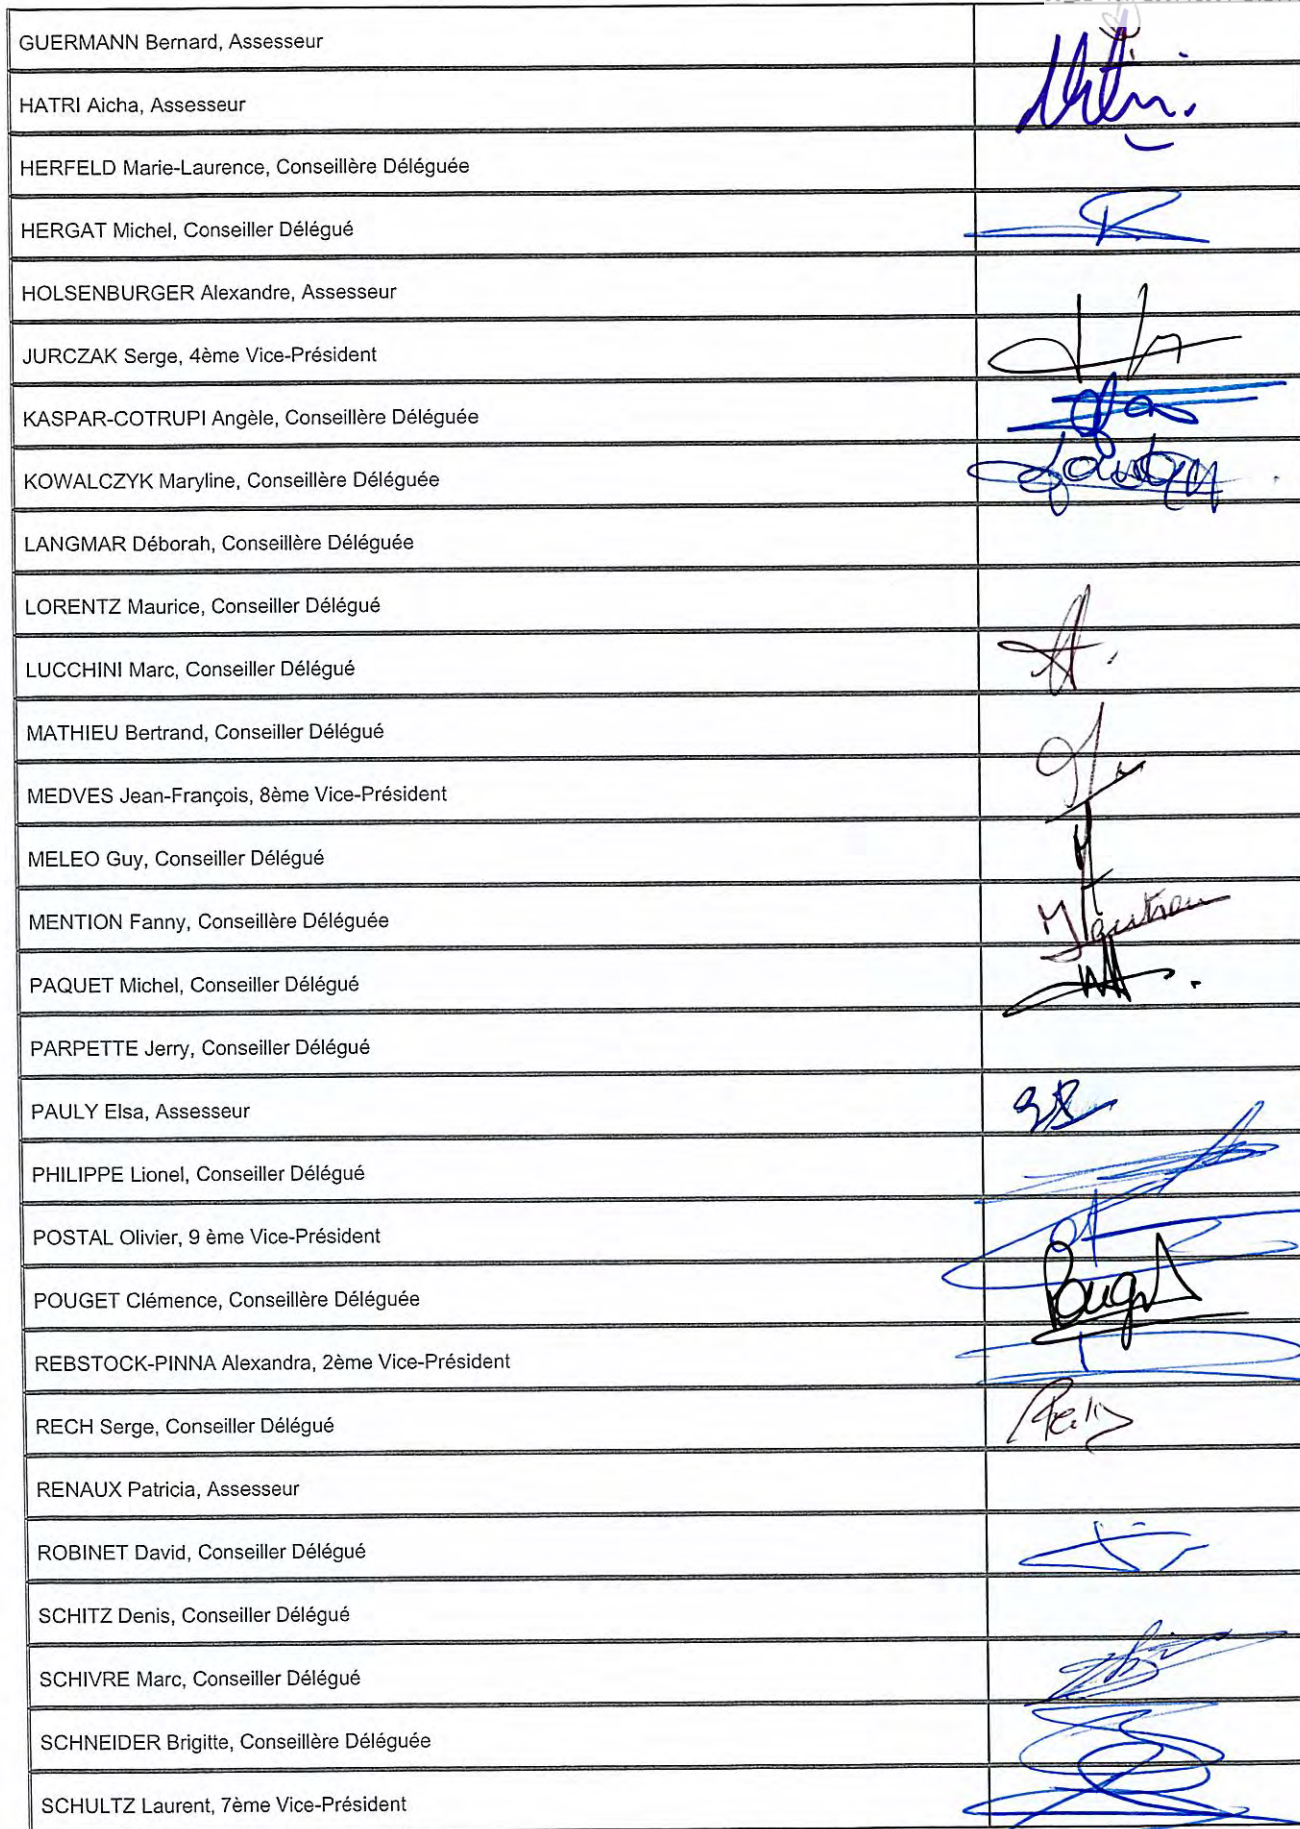 GUERMANN Bernard, Assesseur
HATRI Aicha, Assesseur
HERFELD Marie-Laurence, Conseillère Déléguée
HERGAT Michel, Conseiller Délégué
HOLSENBURGER Alexandre, Assesseur
JURCZAK Serge, 4ème Vice-Président
KASPAR-COTRUPI Angèle, Conseillère Déléguée
KOWALCZYK Maryline, Conseillère Déléguée
LANGMAR Déborah, Conseillère Déléguée
LORENTZ Maurice, Conseiller Délégué
LUCCHINI Marc, Conseiller Délégué
MATHIEU Bertrand, Conseiller Délégué
MEDVES Jean-François, 8ème Vice-Président
MELEO Guy, Conseiller Délégué
MENTION Fanny, Conseillère Déléguée
PAQUET Michel, Conseiller Délégué
PARPETTE Jerry, Conseiller Délégué
PAULY Elsa, Assesseur
PHILIPPE Lionel, Conseiller Délégué
POSTAL Olivier, 9 ème Vice-Président
POUGET Clémence, Conseillère Déléguée
REBSTOCK-PINNA Alexandra, 2ème Vice-Président
RECH Serge, Conseiller Délégué
RENAUX Patricia, Assesseur
ROBINET David, Conseiller Délégué
SCHITZ Denis, Conseiller Délégué
SCHIVRE Marc, Conseiller Délégué
SCHNEIDER Brigitte, Conseillère Déléguée
SCHULTZ Laurent, 7ème Vice-Président